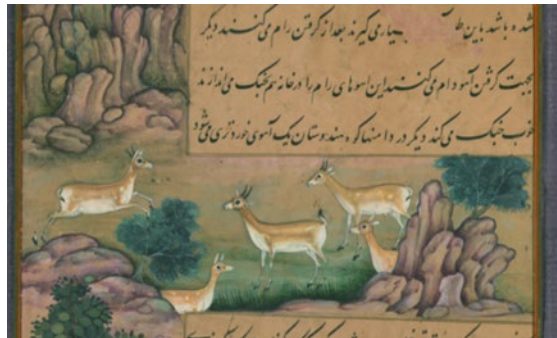 شده باشد باین طا بسیار می‌گیرند بعد از گرفتن رام می‌کنند دیگر
بجهت گرفتن آهو دام می‌کنند این آهوهای رام را در خانه هم بجنگ می‌اندازند
خوب جنگ می‌کند دیگر در دامنهاء کوه هندوستان یک آهوی خوردتری می‌شود